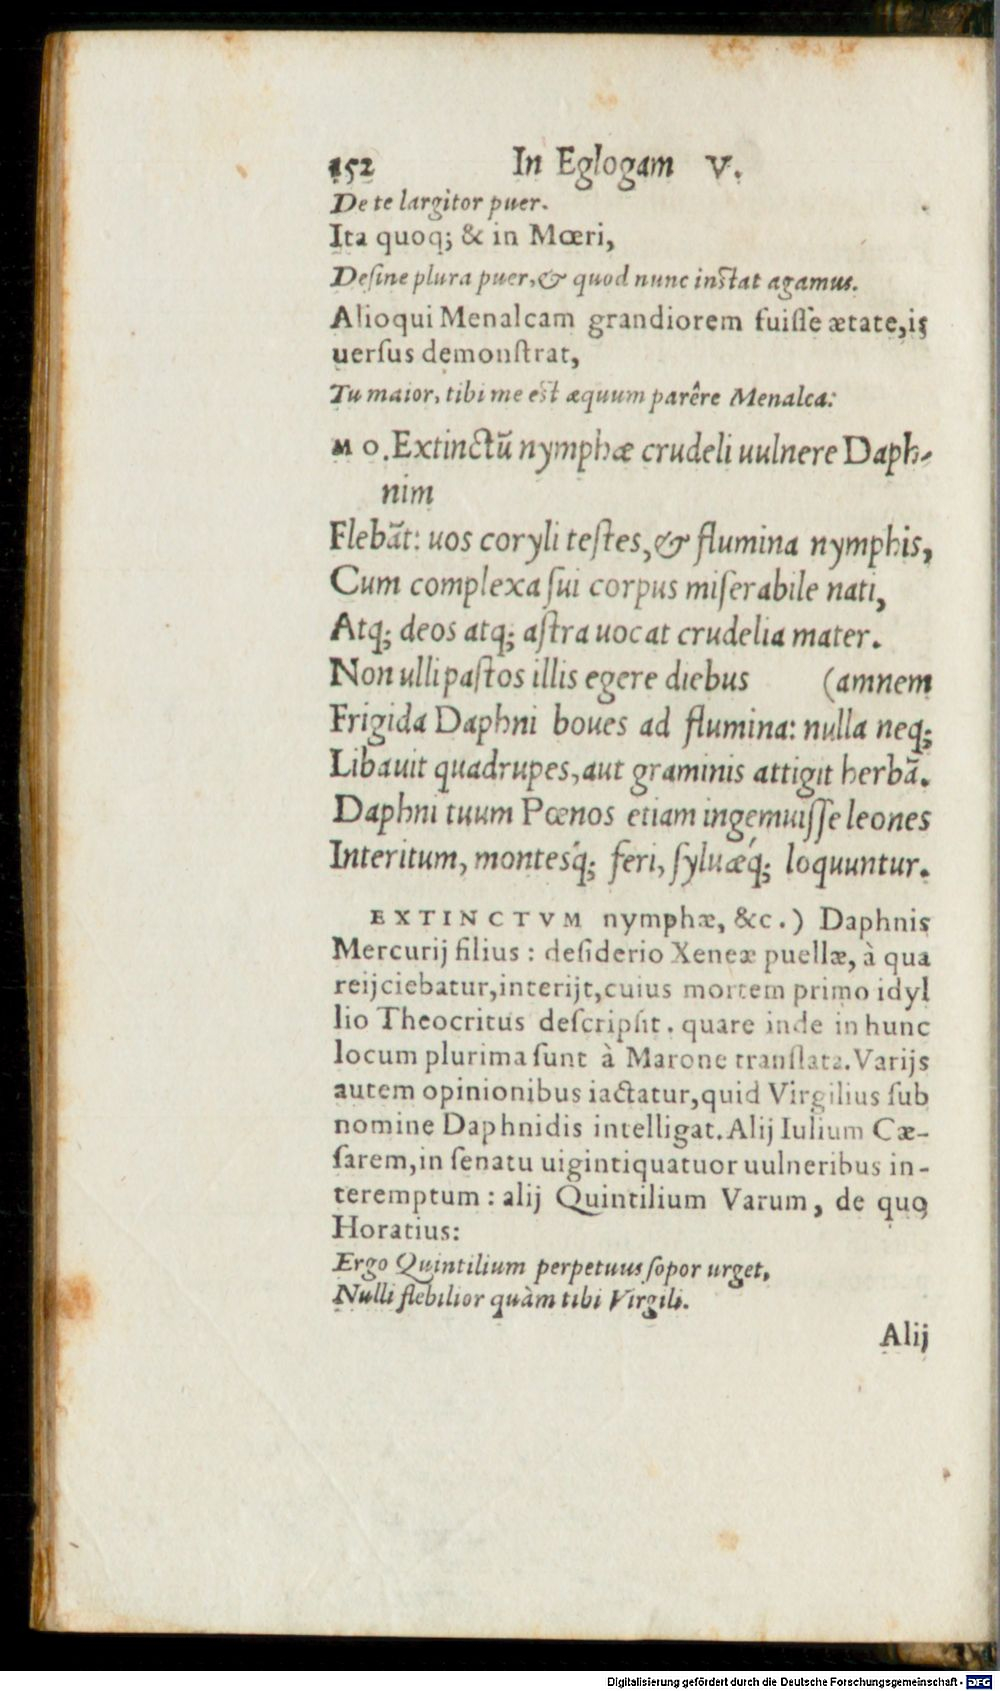 152 In Eglogam V.
De te largitor puer.
Ita quoq; & in Mœri,
Deſine plura puer, & quod nunc inſtat agamus.
Alioqui Menalcam grandiorem fuiſſe ætate, is
uerſus demonſtrat,
Tu maior, tibi me eſt æquum parêre Menalca:
M O. Extinctũ nymphæ crudeli uulnere Daph-
nim
Flebãt: uos coryli teſtes, & flumina nymphis,
Cum complexa ſui corpus miſerabile nati,
Atq; deos atq; aſtra uocat crudelia mater.
Non ulli paſtos illis egere diebus (amnem
Frigida Daphni boues ad flumina: nulla neq;
Libauit quadrupes, aut graminis attigit herbã.
Daphni tuum Pœnos etiam ingemuiſſe leones
Interitum, montesq́; feri, ſyluæq́; loquuntur.
EXTINCTVM nymphæ, &c.) Daphnis
Mercurij filius: deſiderio Xeneæ puellæ, à qua
reijciebatur, interijt, cuius mortem primo idyl
lio Theocritus deſcripſit. quare inde in hunc
locum plurima ſunt à Marone tranſlata. Varijs
autem opinionibus iactatur, quid Virgilius ſub
nomine Daphnidis intelligat. Alij Iulium Cæ-
ſarem, in ſenatu uigintiquatuor uulneribus in-
teremptum: alij Quintilium Varum, de quo
Horatius:
Ergo Quintilium perpetuus ſopor urget,
Nulli flebilior quàm tibi Virgili.
Alij
Digitalisierung gefördert durch die Deutsche Forschungsgemeinschaft - DFG